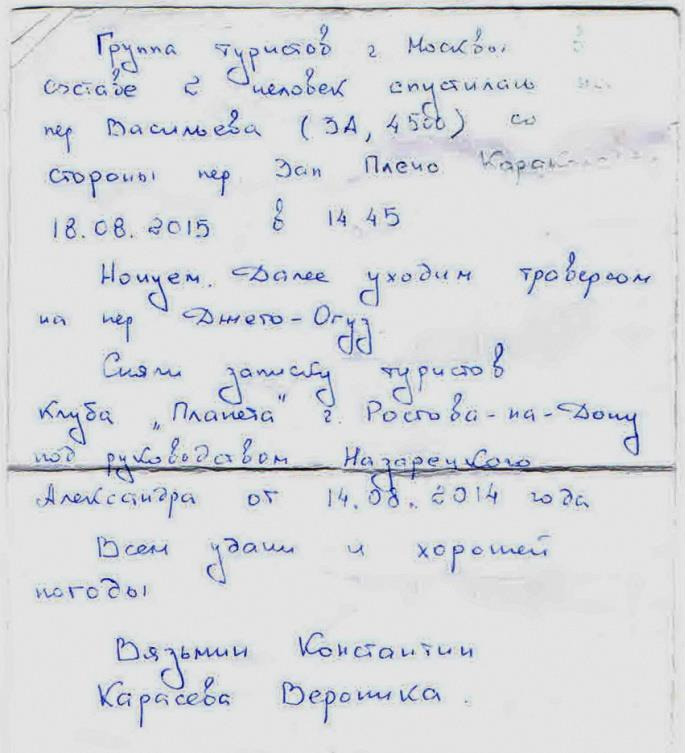 Группа туристов г. Москвы в
составе 2 человек спустилась на
пер Васильева (3А, 4500) со
стороны пер. Зап Плечо
18.08.2015 в 14 45
Ночуем. Далее уходим траверсом
на пер Джето-Огуз
Сняли записку туристов
клуба „Планета" г. Ростова-на-Дону
под руководством Назарецкого
Александра от 14.08.2014 года
Всем удачи и хорошей
погоды
Вязьмин Константин
Карасева Вероника.